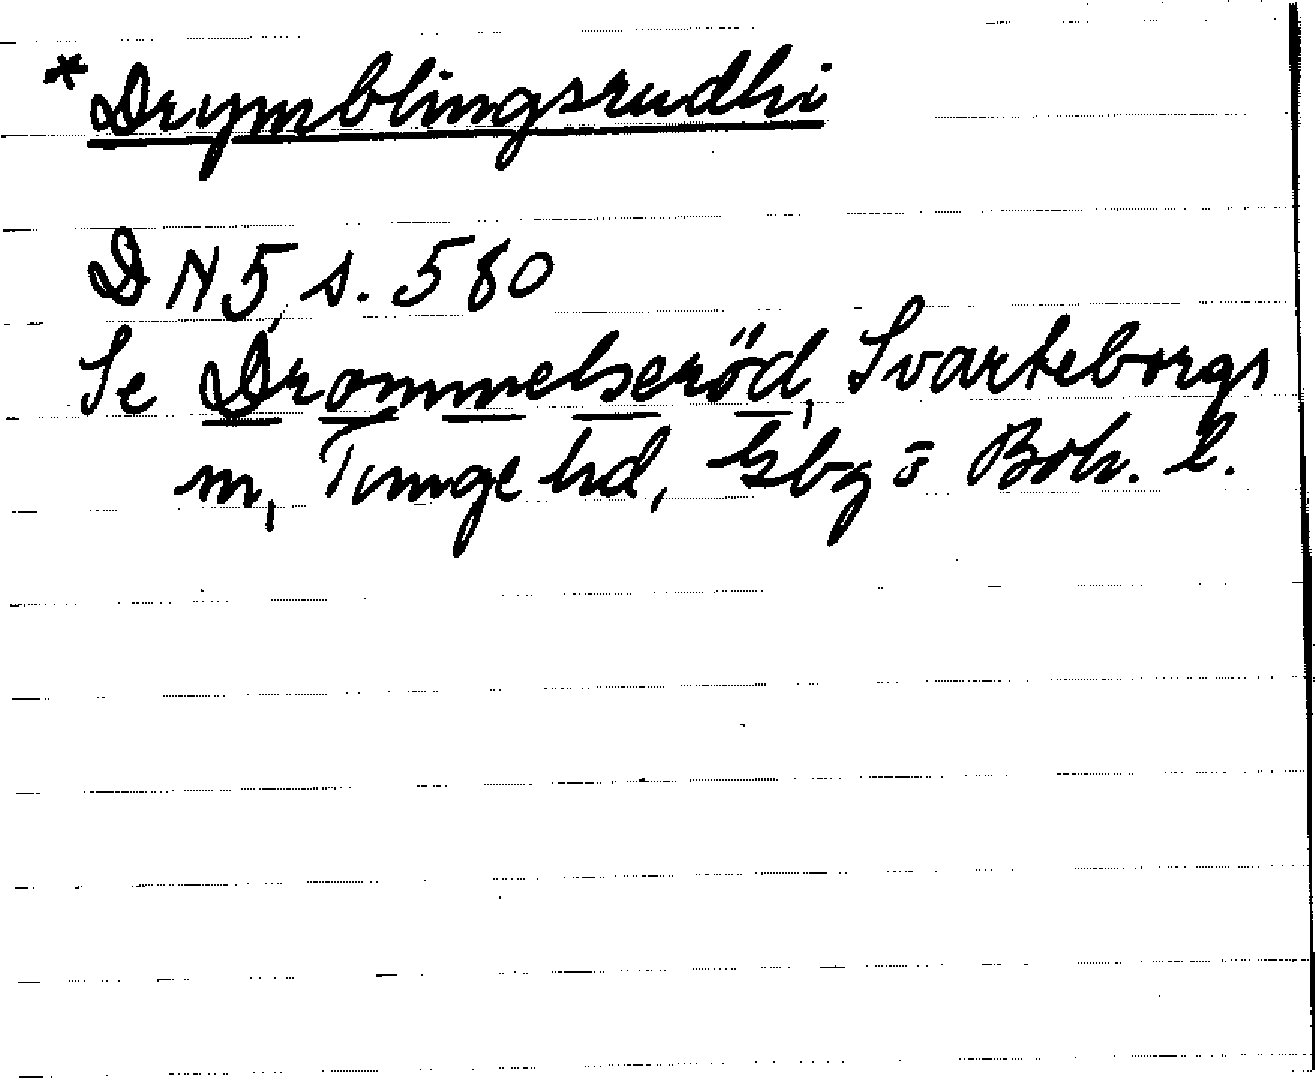 *Drymblingsrudhi
DN 5, s. 580
Se Drommelseröd, Svarteborgs
m, Tunge hd, Gbg o Boh. l.